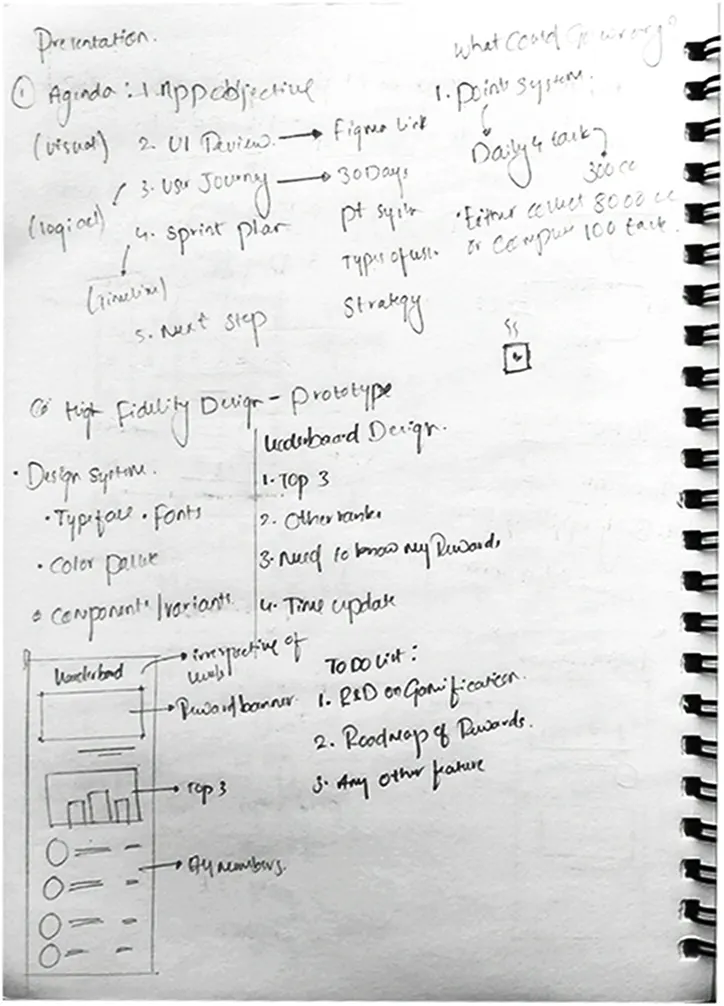 Presentation.
① Agenda : 1. App objective
(visual) 2. UI Review. → Figma Link
3. User Journey → 30 Days
(logical)
pt systm
4. Sprint plan
Types of use.
(Timeline)
Strategy
5. Next step
What Could Go wrong?
1. Point System.
Daily 4 task
300 cc
• Either collect 3000 cc
or Complete 100 task.
High Fidelity Design - Prototype
• Design System.
• Typeface • Fonts
• Color palette
Components / variants
Leaderboard Design.
1. TOP 3
2. Other ranks
3. Need to know my Rewards
4. Time update
Leaderboard
irrespective of
levels
Reward banner.
Top 3
numbers.
TO DO List :
1. R&D on Gamification.
2. Roadmap of Rewards.
3. Any other feature